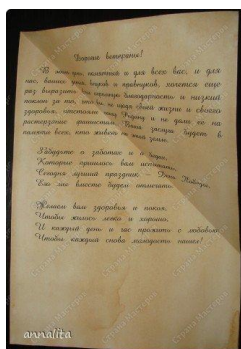 Дорогие ветераны!
В этот день памятный и для всего вас, и для
нас, ваших детей, внуков и правнуков, хочется ещё
раз выразить вам огромную благодарность и низкий
поклон за то, что вы не щадя своей жизни и своего
здоровья, отстояли нашу Родину и не дали её на
растерзание фашистам. Ваши заслуги будет в
памяти всех, кто живёт на этой земле.
Забудьте о заботах и о бедах,
Которые пришлось вам испытать.
Сегодня лучший праздник - День Победы,
Его мы вместе будем отмечать.
Желаем вам здоровья и покоя.
Чтобы жилось легко и хорошо.
И каждый день и час прожить с любовью,
Чтобы каждый снова молодость нашел!
annalita